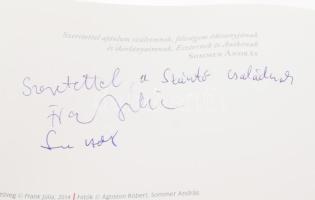 Szeretettel ajánlom szüleimnek, feleségem édesanyjának
és ikerlányaimnak, Eszternek és Andreának
SOMMER ANDRÁS
Szeretettel a Szántó családnak
Frank Júlia
Szöveg © Frank Júlia, 2014 | Fotók © Ágoston Róbert, Sommer András